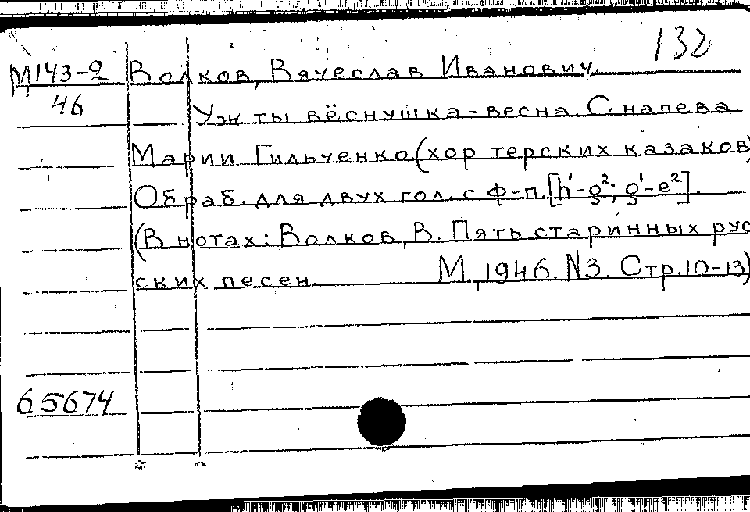 132
М143-2 Волков, Вячеслав Иванович.
46 Уж ты вёснушка-весна. С напева
Марии Гильченко (хор терских казаков)
Обраб. для двух гол. с ф-п. [h¹-g²; g¹-e²].
(В нотах: Волков, В. Пять старинных рус
ских песен. М., 1946. N3. Стр. 10-13)
65674